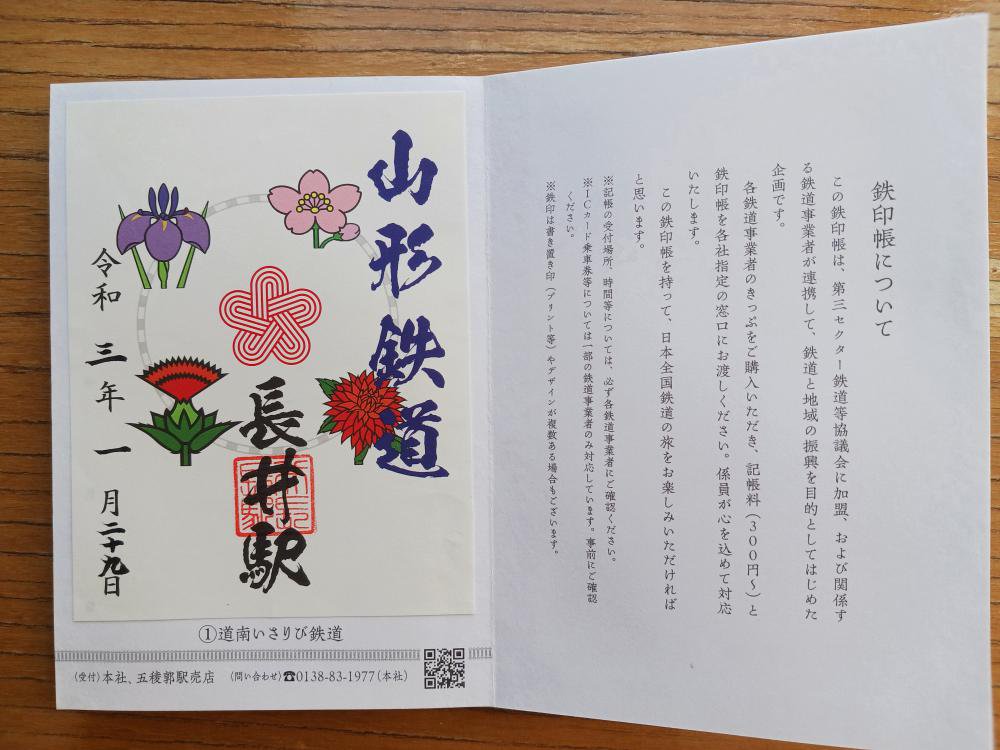 鉄印帳について
この鉄印帳は、第三セクター鉄道等協議会に加盟、および関係す
る鉄道事業者が連携して、鉄道と地域の振興を目的としてはじめた
企画です。
各鉄道事業者のきっぷをご購入いただき、記帳料（300円～）と
鉄印帳を各社指定の窓口にお渡しください。係員が心を込めて対応
いたします。
この鉄印帳を持って、日本全国鉄道の旅をお楽しみいただければ
と思います。
※記帳の受付場所、時間等については、必ず各鉄道事業者にご確認ください。
※ICカード乗車券等については一部の鉄道事業者のみ対応しています。事前にご確認
ください。
※鉄印は書き置き印（プリント等）やデザインが複数ある場合もございます。
山形鉄道
長井駅
令和三年一月二十九日
①道南いさりび鉄道
（受付）本社、五稜郭駅売店 （問い合わせ）☎0138-83-1977（本社）